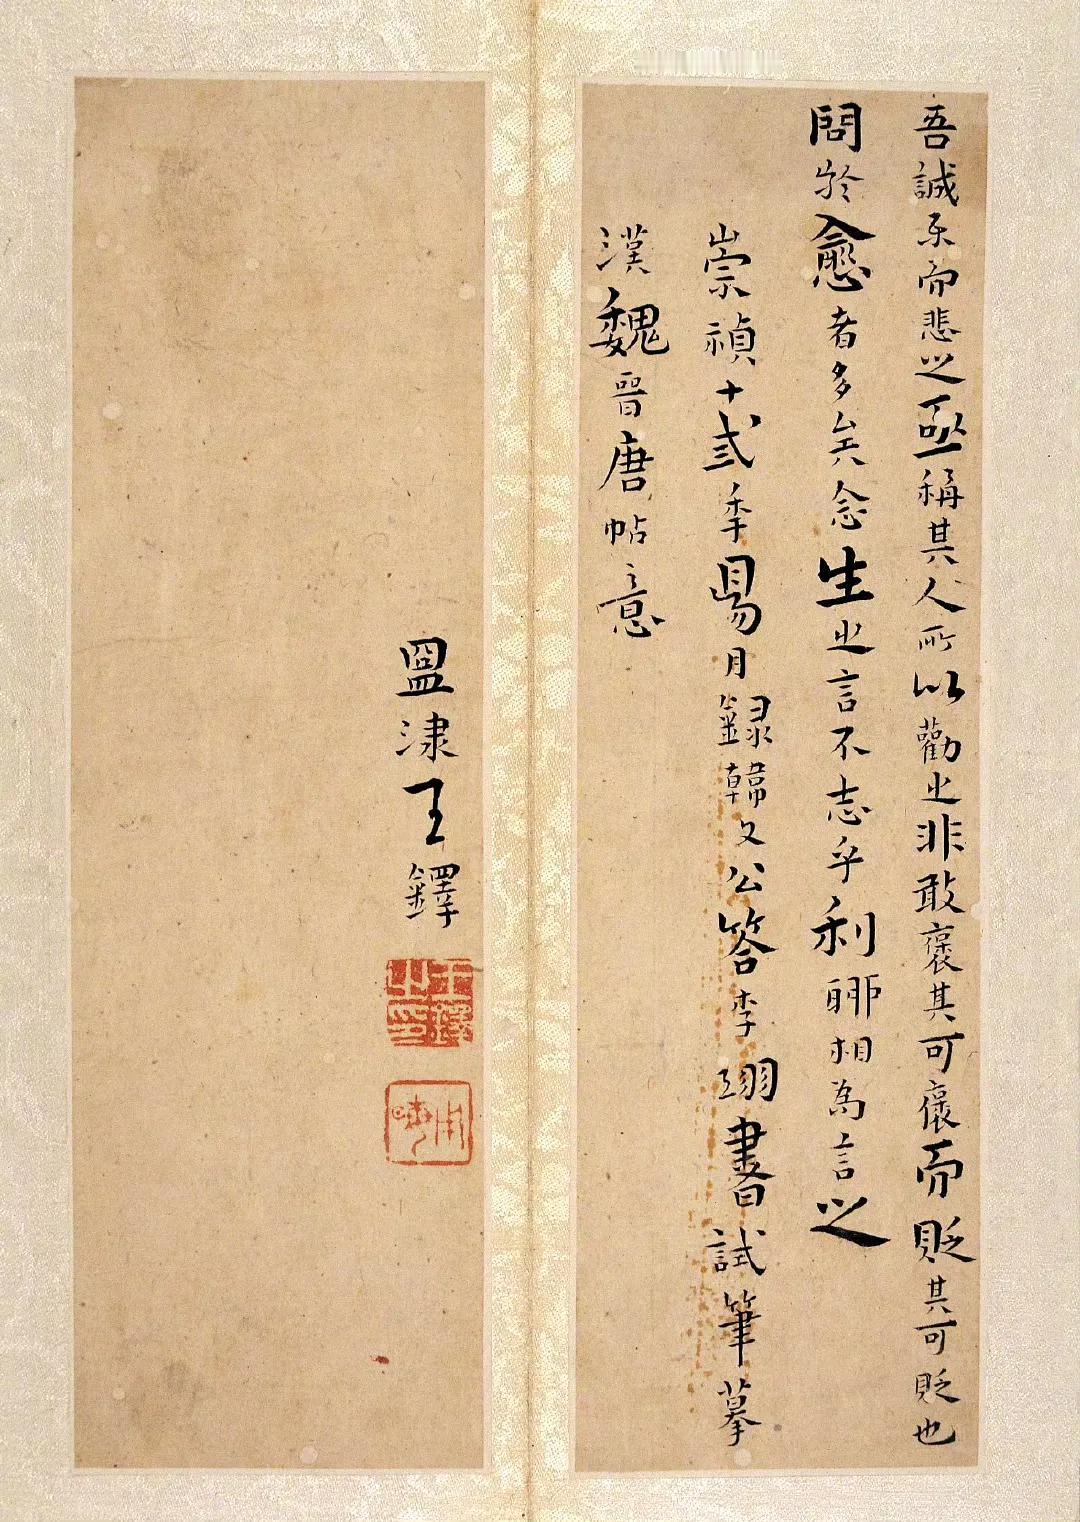 吾誠樂而悲之亟稱其人所以勸之非敢褒其可褒而貶其可貶也
問於愈者多矣念生之言不志乎利聊相為言之
崇禎十弐季昜月錄韓文公答李翊書試筆摹
漢魏晉唐帖意
孟津王鐸
王鐸之印